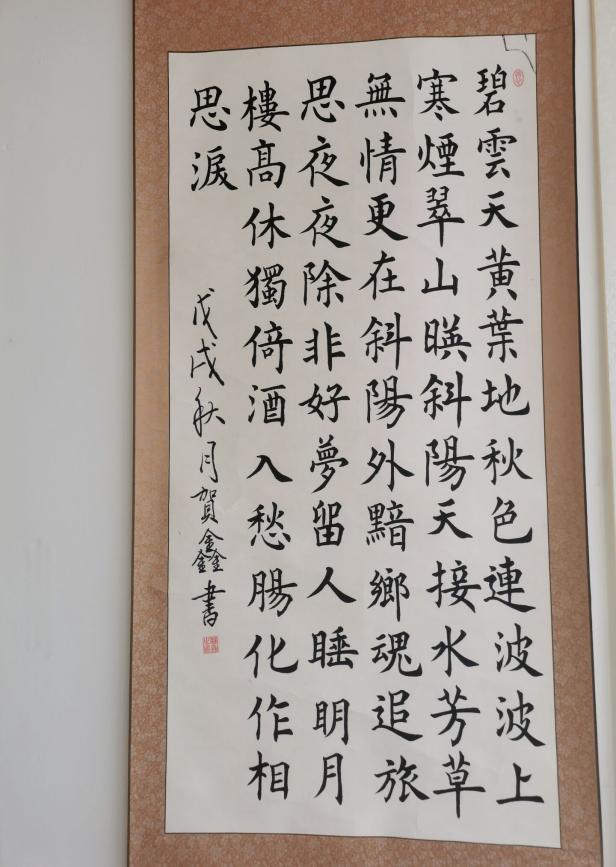 碧雲天黄葉地秋色連波波上
寒煙翠山暎斜陽天接水芳草
無情更在斜陽外黯鄉魂追旅
思夜夜除非好夢留人睡明月
樓高休獨倚酒入愁腸化作相
思淚
戊戌秋月賀鑫書